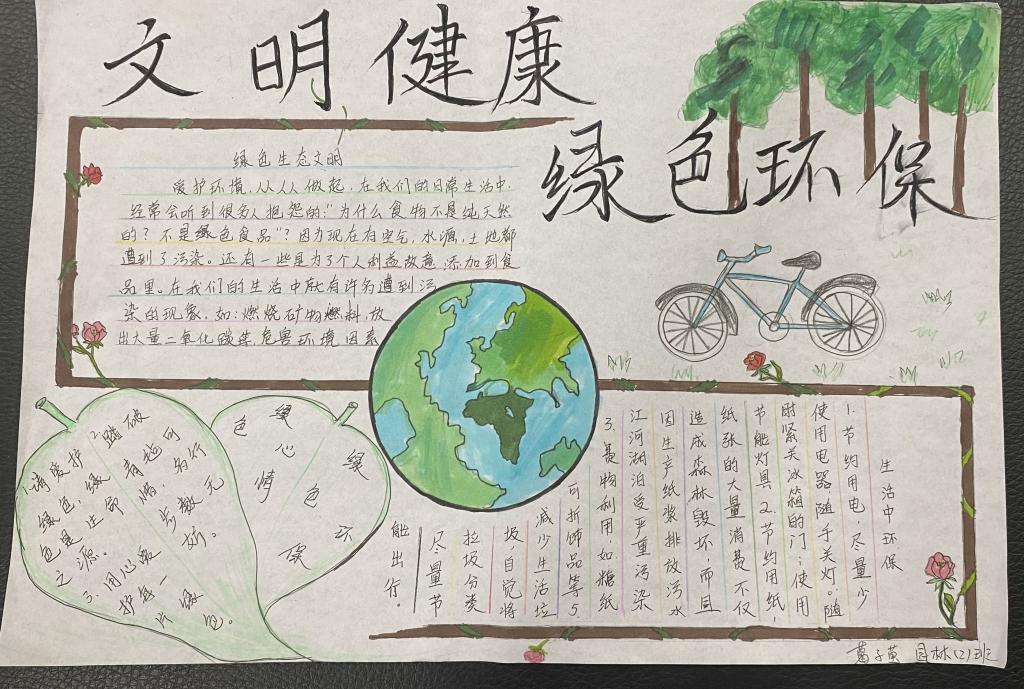 文明健康
绿色环保
绿色生态文明
爱护环境,从人人做起,在我们的日常生活中,
经常会听到很多人抱怨的:“为什么食物不是纯天然
的?不是绿色食品”?因为现在有空气,水源,土地都
遭到了污染。还有一些是为了个人利益故意添加到食
品里。在我们的生活中就有许多遭到污
染的现象,如:燃烧矿物燃料,放
出大量二氧化碳等危害环境因素
1.请爱护
绿色,绿
色是生命
之源。
2.踏破
青地可
惜,
无
3.用心
护
一
片绿
色。
绿色
心情
绿色
环保
生活中环保
1.节约用电,尽量少
使用电器,随手关灯。随
时紧关冰箱的门;使用
节能灯具 2.节约用纸,
纸张的大量消费不仅
造成森林毁坏,而且
因生产纸浆排放污水
江河湖泊受严重污染
3.费物利用,如糖纸
可折饰品等5.
减少生活垃
圾,自觉将
垃圾分类
尽量节
能出行。
葛子 园林(2)班